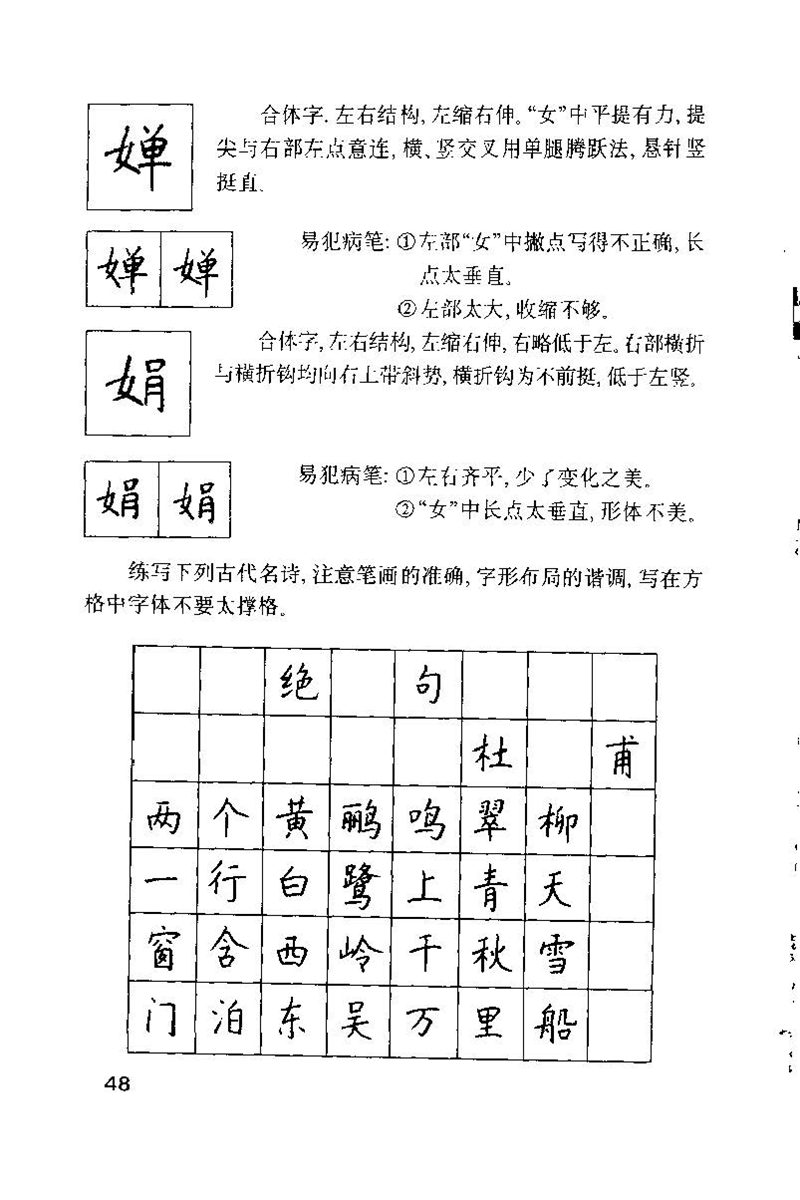 婵
合体字.左右结构,左缩右伸。“女”中平提有力,提
尖与右部左点意连,横、竖交叉用单腿腾跃法,悬针竖
挺直.
婵 婵
易犯病笔:①左部“女”中撇点写得不正确,长
点太垂直。
②左部太大,收缩不够。
娟
合体字,左右结构,左缩右伸,右略低于左。右部横折
与横折钩均向右上带斜势,横折钩为不前挺,低于左竖。
娟 娟
易犯病笔:①左右齐平,少了变化之美。
②“女”中长点太垂直,形体不美。
练写下列古代名诗,注意笔画的准确,字形布局的谐调,写在方
格中字体不要太撑格。
绝 句
杜 甫
两个黄鹂鸣翠柳
一行白鹭上青天
窗含西岭千秋雪
门泊东吴万里船
48